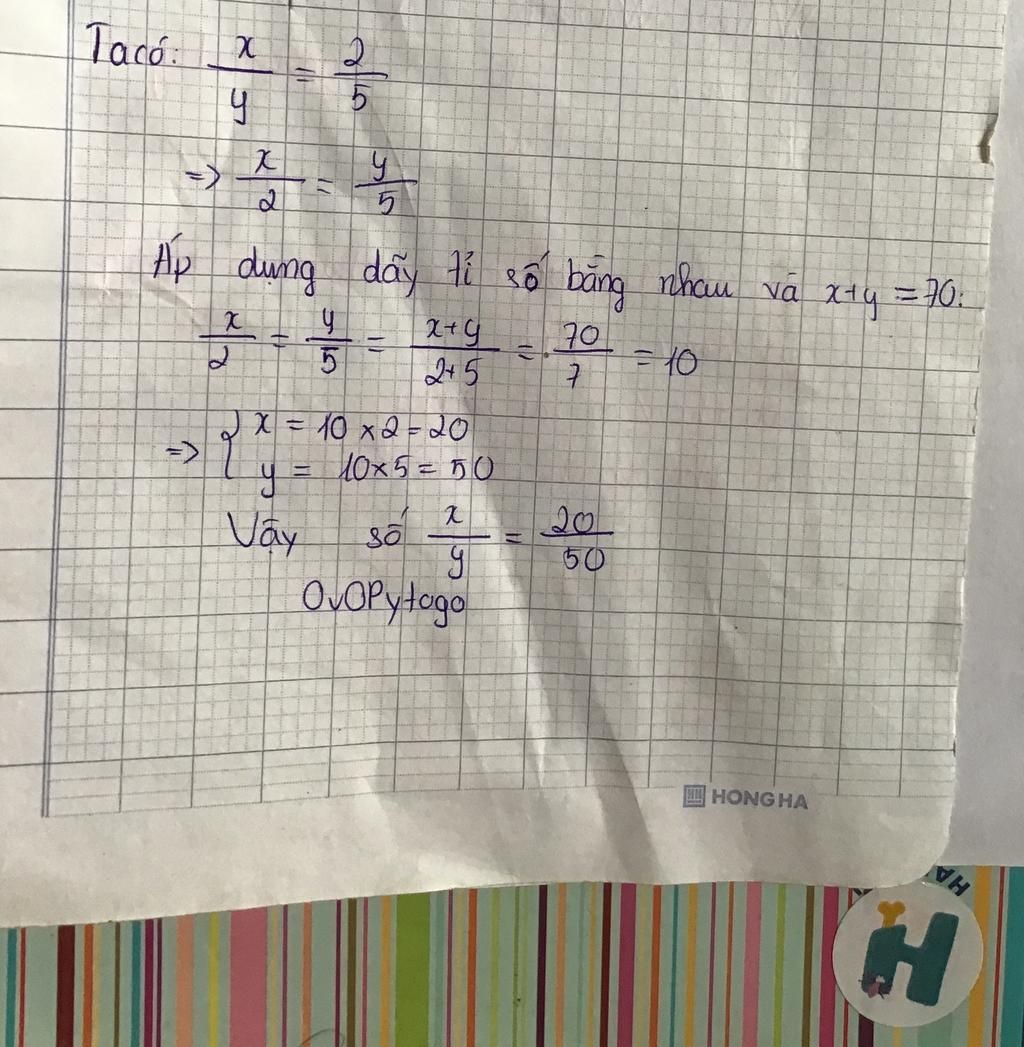 Ta có: x/y = 2/5
=> x/2 = y/5
Áp dụng dãy tỉ số bằng nhau và x+y = 70:
x/2 = y/5 = x+y/2+5 = 70/7 = 10
=> { x = 10 × 2 = 20
y = 10×5 = 50
Vậy số x/y = 20/50
OvOPytago
HONG HA
HA
H